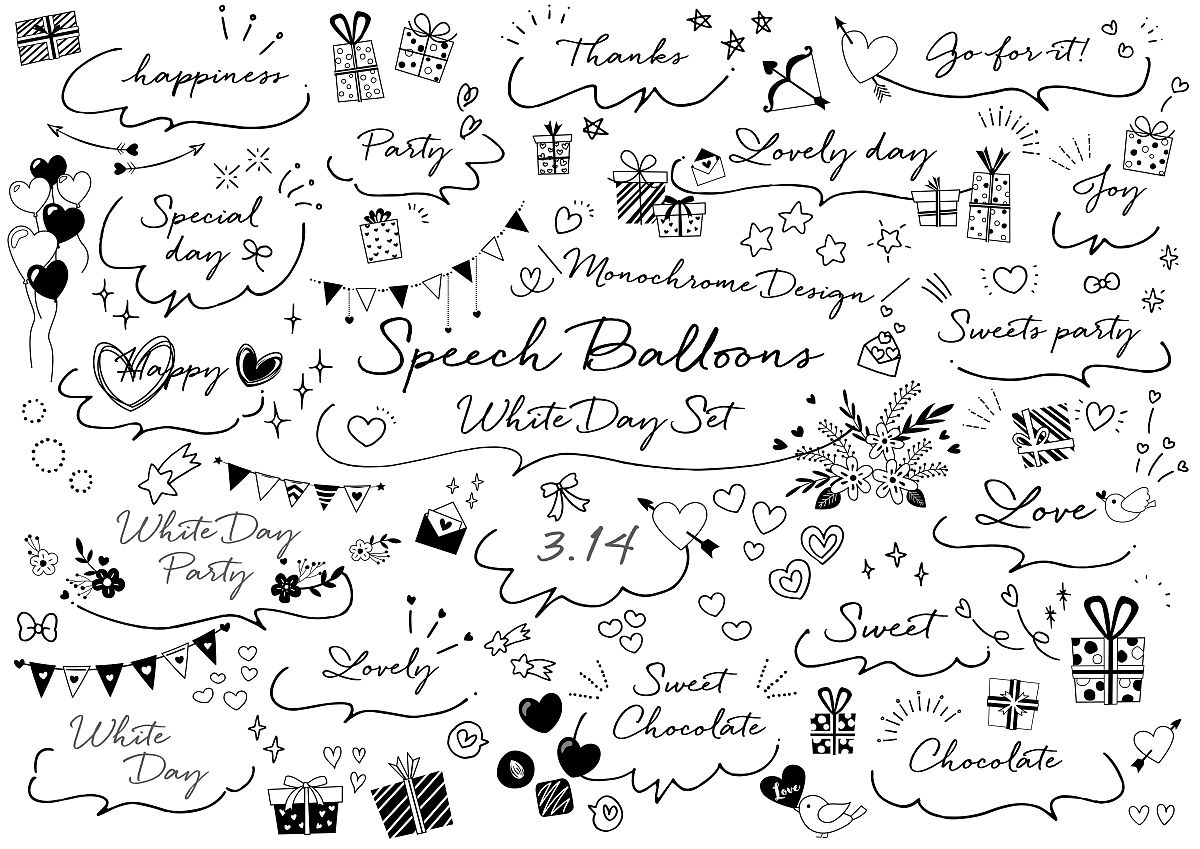 happiness
Thanks
Go for it!
Party
Lovely day
Joy
Special
day
Monochrome Design
Speech Balloons
White Day Set
Sweets party
Happy
Love
White Day
Party
3.14
Sweet
Lovely
Sweet
Chocolate
White
Day
Chocolate
Love